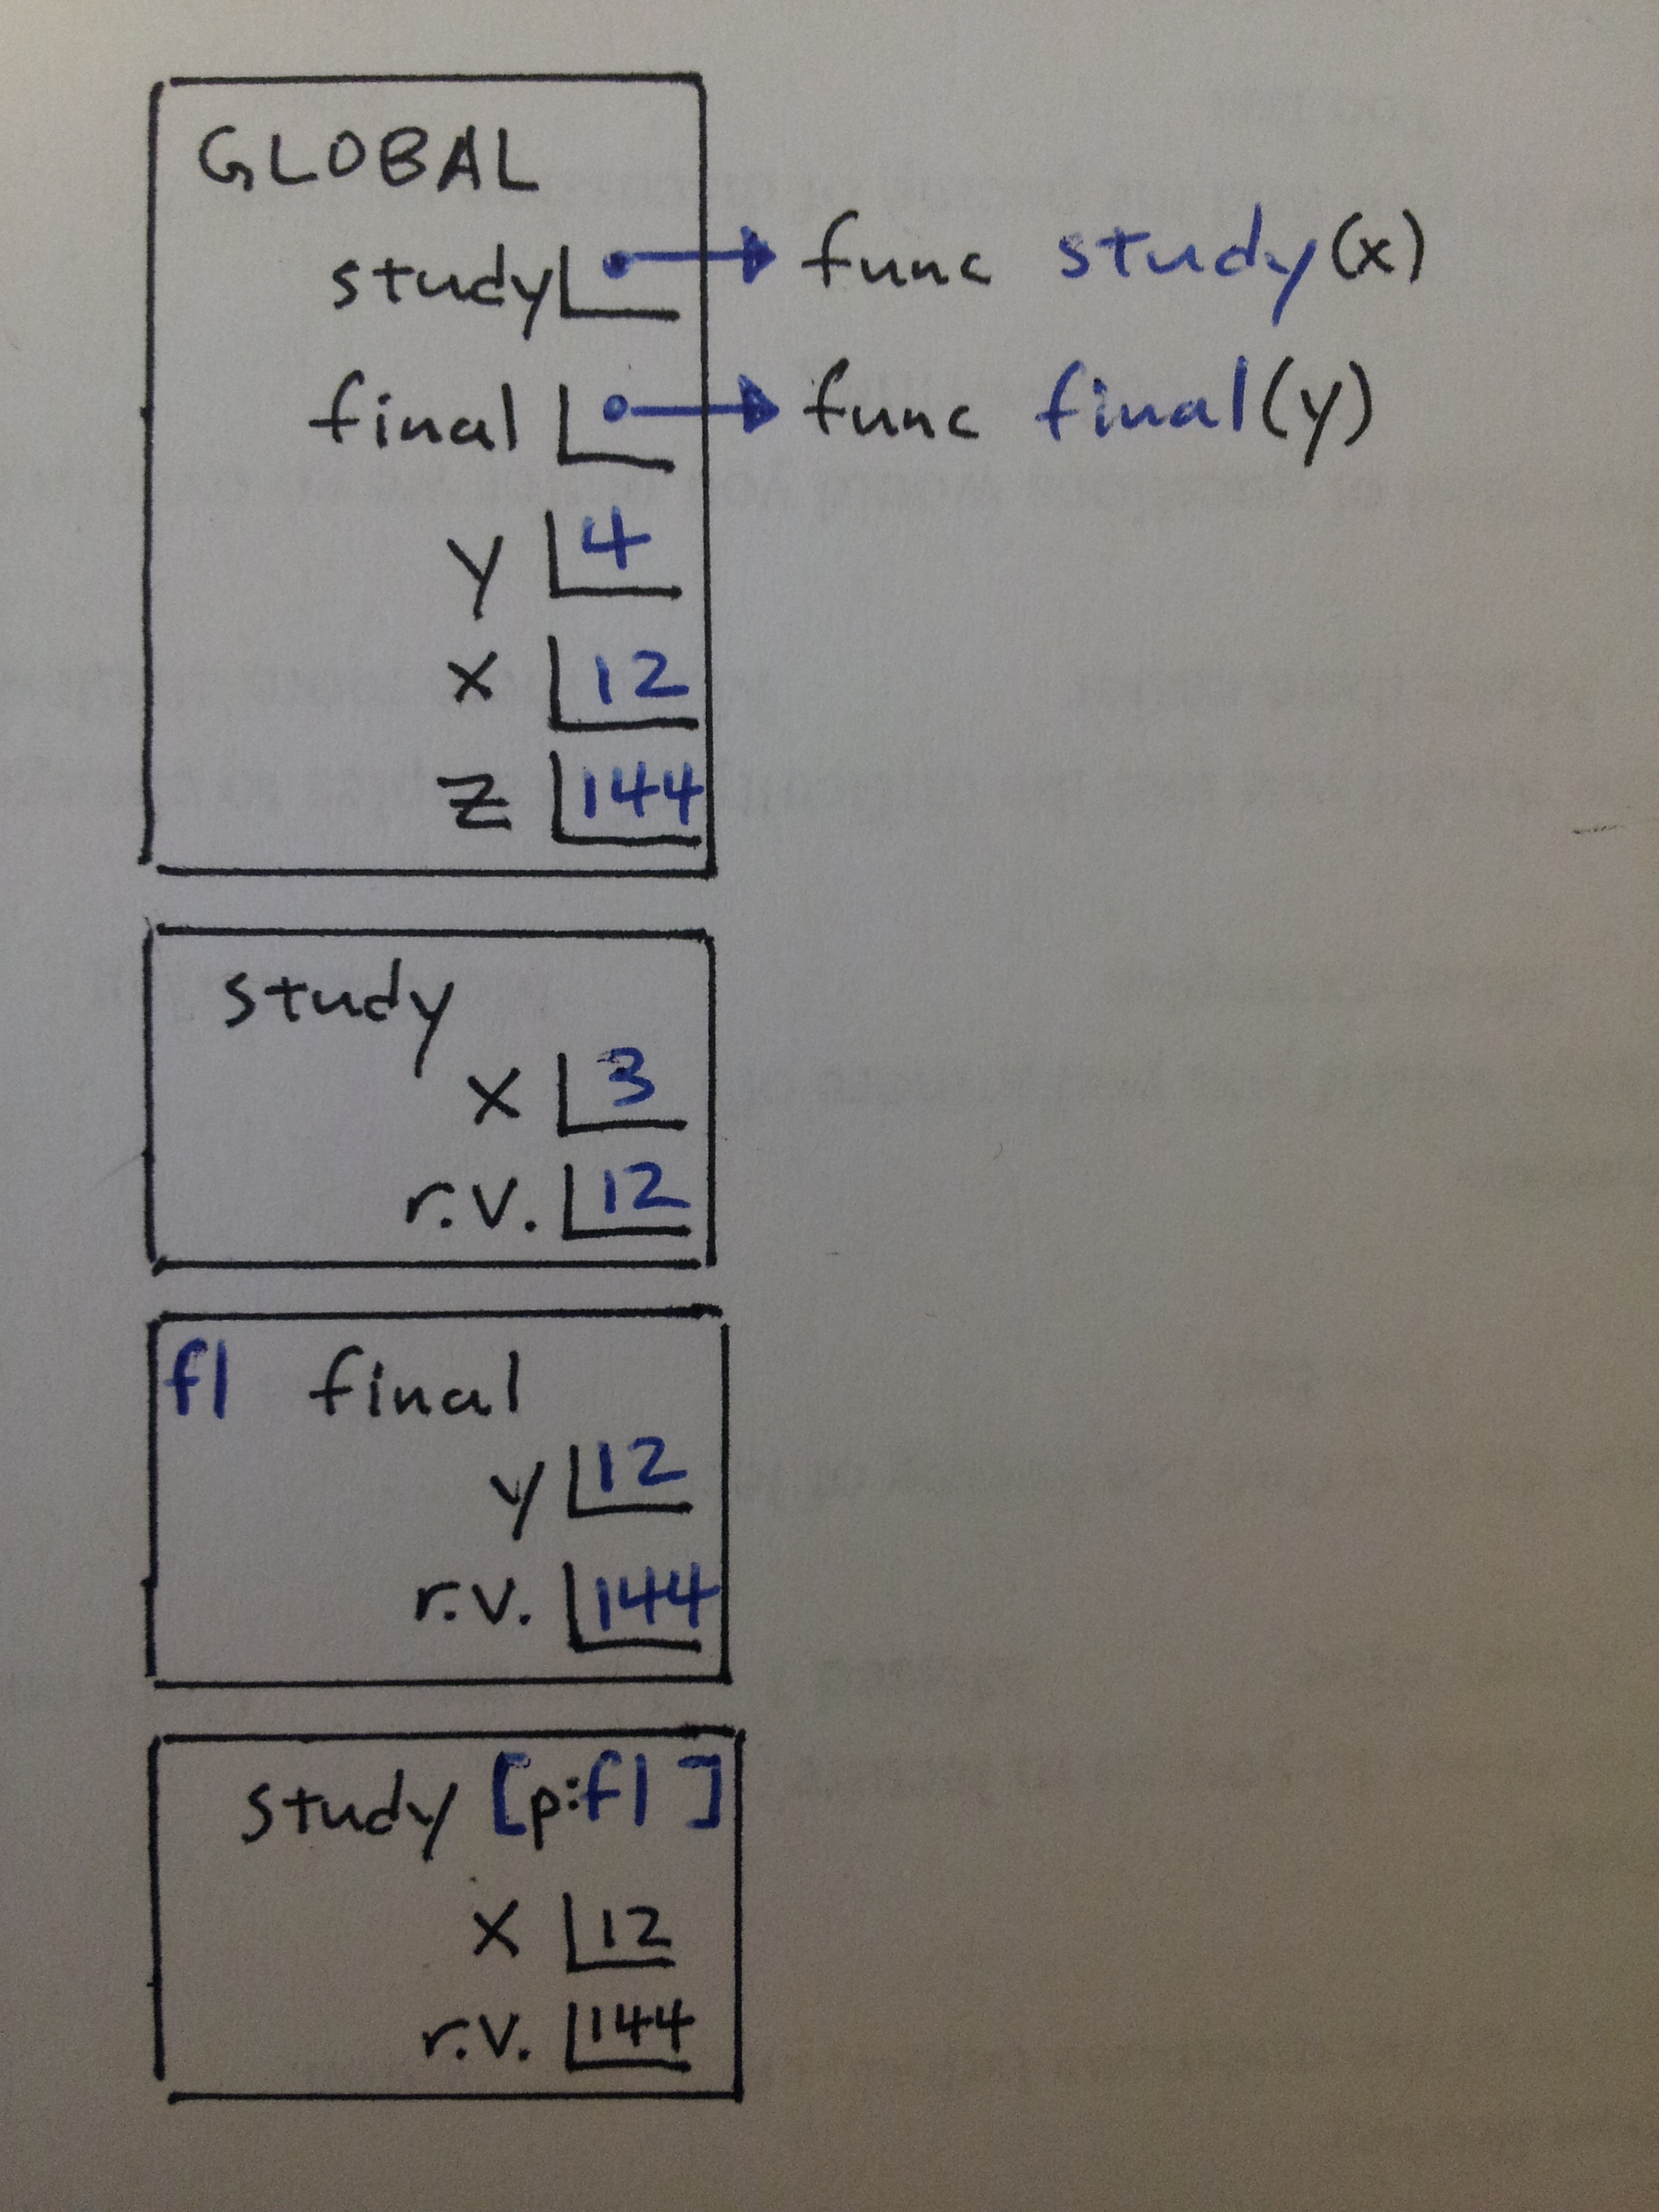 GLOBAL
study func study(x)
final func final(y)
y 4
x 12
z 144
study
x 3
r.v. 12
f1 final
y 12
r.v. 144
study [p:f1]
x 12
r.v. 144